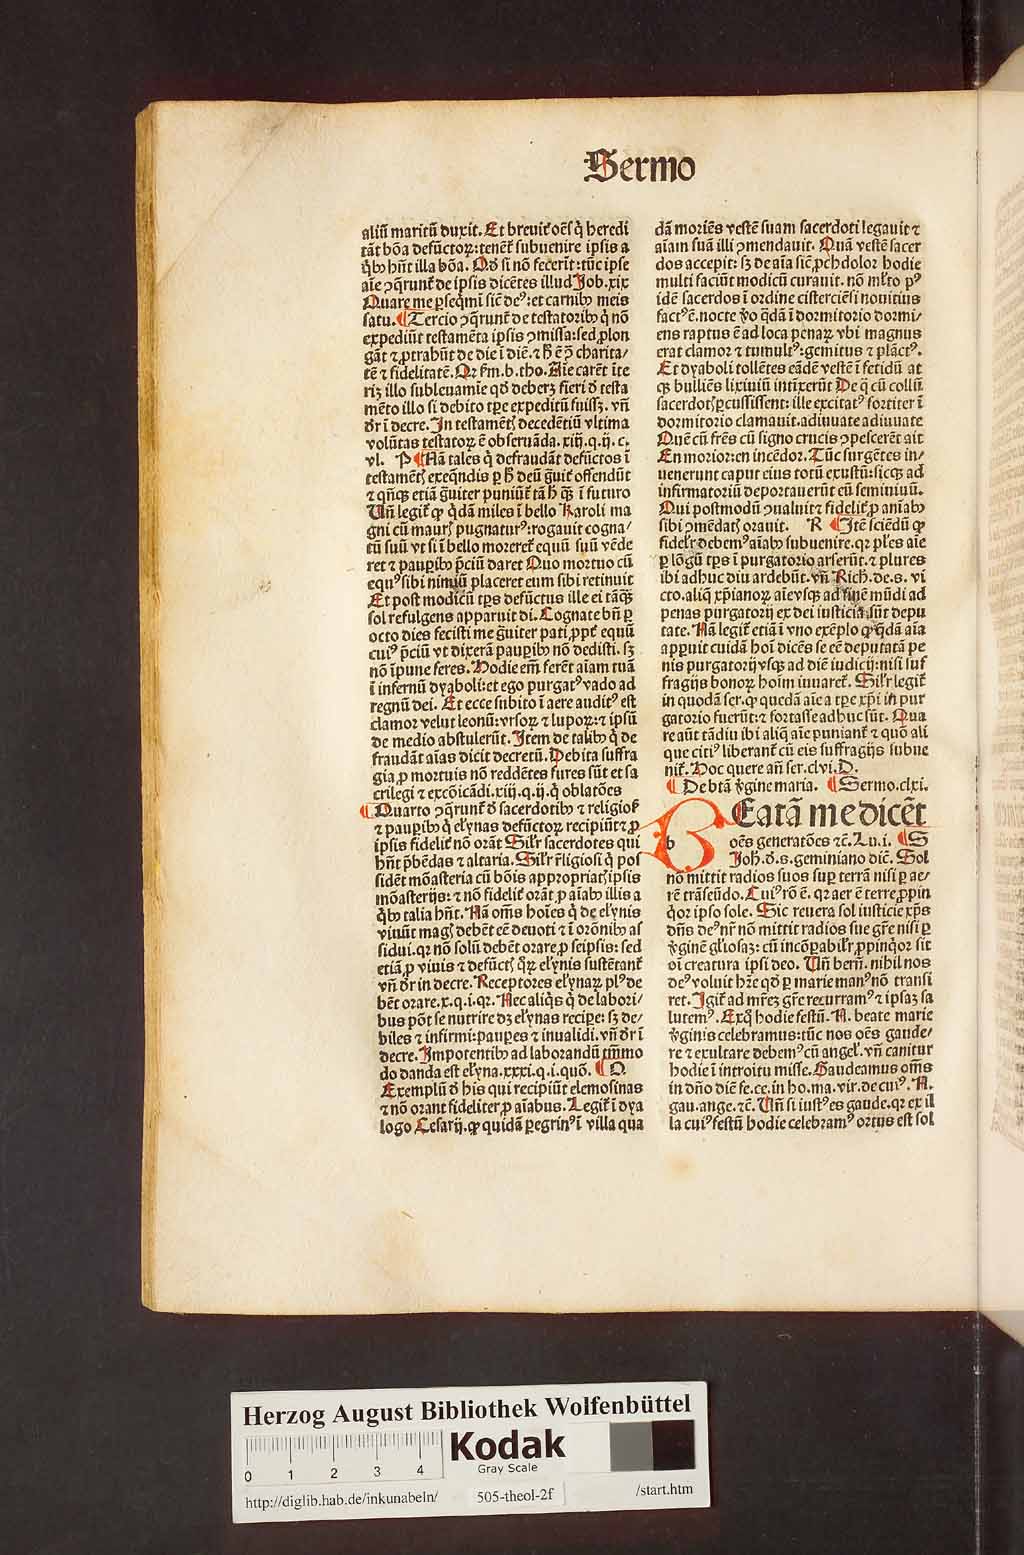 Sermo
aliũ maritũ duxit. Et breuit̃ oẽs q̃ heredi
tãt bõa defũctoꝝ: tenẽt̃ subuenire ipsis a
q̃bꝰ hñt illa bõa. Qđ si nõ fecerĩt: tũc ipse
aĩe ꝯq̃runt̃ de ipsis dicẽtes illud Job. xix
Quare me ꝑseq̃mĩ sic̃ deꝰ: et carnibꝰ meis
satu. ¶ Tercio ꝯq̃runt̃ de testatoribꝰ q̃ nõ
expediũt testamẽta ipsis ꝯmissa: sed ꝓlon
gãt ⁊ ꝓtrahũt de die ĩ diẽ. ⁊ h̃ ẽ ꝯ̃ charita/
tẽ ⁊ fidelitatẽ. Qꝛ fm̃. b. tho. Aĩe carẽt ĩte
rĩꝫ illo subleuamĩe qđ deberꝫ fieri đ testa
mẽto illo si debito tꝑe expeditũ fuissꝫ. vñ
đr ĩ decre. In testamẽtꝭ decedẽtiũ vltima
volũtas testatoꝝ ẽ obseruãda. xiij. q. ij. c.
vl. P ¶ Nã tales q̃ defraudãt defũctos ĩ
testamẽtꝭ exeq̃ndis ꝑ h̃ deũ g̃uit̃ offendũt
⁊ q̃nꝗꝫ etiã g̃uiter puniũt̃ tã h̃ ꝗꝫ ĩ futuro
Uñ legit̃ ꝙ q̃dã miles ĩ bello Karoli ma
gni cũ maurꝭ pugnaturꝰ: rogauit cogna/
tũ suũ vt si ĩ bello moreret̃ equũ suũ vẽde
ret ⁊ pauꝑibꝰ p̃ciũ daret Quo mortuo cũ
equꝰ sibi nimiũ placeret eum sibi retinuit
Et post modicũ tꝑs defũctus ille ei tãꝗꝫ
sol refulgens apparuit di. Cognate bñ ꝑ
octo dies fecisti me g̃uiter pati, ꝓpt̃ equũ
cuiꝰ p̃ciũ vt dixerã pauꝑibꝰ nõ dedisti. sꝫ
nõ ĩpune feres. Hodie em̃ ferẽt aĩam tuã
ĩ infernũ dyaboli: et ego purgatꝰ vado ad
regnũ dei. Et ecce subito ĩ aere auditꝰ est
clamor velut leonũ: vrsoꝝ ⁊ lupoꝝ: ⁊ ipsũ
de medio abstulerũt. Item de talibꝰ q̃ de
fraudãt aĩas dicit decretũ. Debita suffra
gia, ꝓ mortuis nõ reddẽtes fures sũt et sa
crilegi ⁊ excõicãdi. xiij. q. ij. q̃ oblatões
¶ Quarto ꝯq̃runt̃ đ sacerdotibꝰ ⁊ religiosꝭ
⁊ pauꝑibꝰ q̃ elỹnas defũctoꝝ recipiũt ⁊ ꝓ
ipsis fidelit̃ nõ orãt Sil̃r sacerdotes qui
hñt p̃bẽdas ⁊ altaria. Sil̃r r̃ligiosi q̃ pos
sidẽt mõasteria cũ bõis appropriatꝭ ipsis
mõasterijs: ⁊ nõ fidelit̃ orãt ꝓ aĩabꝰ illis a
q̃bꝰ talia hñt. Nã om̃s hoĩes q̃ de elỹnis
viuũt magꝭ debẽt eẽ deuoti ⁊ ĩ orõnibꝰ as
sidui. qꝛ nõ solũ debẽt orare, ꝓ seipsis: sed
etiã, ꝓ viuis ⁊ defũctꝭ q̃ꝝ elỹnis sustẽtant̃
vñ đr in decre. Receptores elỹnaꝝ plꝰ de
bẽt orare. x. q. i. qꝛ. Nec aliq̃s q̃ de labori/
bus põt se nutrire dꝫ elỹnas recipe: sꝫ de/
biles ⁊ infirmi: pauꝑes ⁊ inualidi. vñ đr ĩ
decre. Impotentibꝰ ad laborandũ tm̃mo
do danda est elỹna. xxxi. q. i. quõ. ¶ Q
Exemplũ đ his qui recipiũt elemosinas
⁊ nõ orant fideliter, ꝓ aĩabus. Legit̃ ĩ dya
logo Cesarij. ꝙ quidã ꝑegrinꝰ ĩ villa qua
dã moriẽs vestẽ suam sacerdoti legauit ⁊
aĩam suã illi ꝯmendauit. Quã vestẽ sacer
dos accepit: sꝫ de aĩa sic̃, ꝓchdolor hodie
multi faciũt modicũ curauit. nõ ml̃to pꝰ
idẽ sacerdos ĩ ordine cisterciẽsi nouitius
factꝰ ẽ. nocte ꝟo q̃dã ĩ dormitorio dormi/
ens raptus ẽ ad loca penaꝝ vbi magnus
erat clamor ⁊ tumultꝰ: gemitus ⁊ plãctꝰ.
Et dyaboli tollẽtes eãdẽ vestẽ ĩ fetidũ at
ꝗꝫ bulliẽs lixiuiũ intĩxerũt De q̃ cũ collũ
sacerdotꝭ ꝑcussissent: ille excitatꝰ fortiter ĩ
dormitorio clamauit. adiuuate adiuuate
Quẽ cũ fr̃es cũ signo crucis ꝯpescerẽt ait
En morior: en incẽdor. Tũc surgẽtes in/
uenerunt caput eius totũ exustũ: sicꝗꝫ ad
infirmatoriũ deportauerũt eũ seminiuũ.
Qui postmodũ ꝯualuit ⁊ fidelit̃, ꝓ aniabꝰ
sibi ꝯmẽdatꝭ orauit. R ¶ Itẽ sciẽdũ ꝙ
fidel̃r debemꝰ aĩabꝰ subuenire. qꝛ pl̃es aĩe
ꝑ lõgũ tꝑs ĩ purgatorio arserũt. ⁊ plures
ibi adhuc diu ardebũt. vñ Rich. de. s. vi
cto. aliq̃ xp̃ianoꝝ aĩe vsꝗꝫ ad finẽ mũdi ad
penas purgatorij ex dei iusticia sũt depu
tate. Nã legit̃ etiã ĩ vno exẽplo ꝙ q̃dã aĩa
apꝑuit cuidã hoĩ dicẽs se eẽ deputatã pe
nis purgatorij vsꝗꝫ ad diẽ iudicij: nisi suf
fragijs bonoꝝ hoĩm iuuaret̃. Sil̃r legit̃
in quodã ser. ꝙ quedã aĩe a tꝑe xp̃i in pur
gatorio fuerũt: ⁊ fortasse adhuc sũt. Qua
re aũt tãdiu ibi aliq̃ aĩe puniant̃ ⁊ quõ ali
que citiꝰ liberant̃ cũ eis suffragijs subue
nit̃. Hoc quere añ ser. clvi. D.
¶ De btã ꝟgine maria. ¶ Sermo. clxi.
BEatã me dicẽt
oẽs generatões ⁊c̃. Lu. i. ¶ S
Joh̃. đ. s. geminiano diẽ. Sol
nõ mittit radios suos suꝑ terrã nisi ꝑ ae/
rẽ trãseũdo. Cuiꝰ rõ ẽ. qꝛ aer ẽ terre, ꝓpin
q̃or ipso sole. Sic reuera sol iusticie xp̃s
dñs deꝰ nr̃ nõ mittit radios sue gr̃e nisi ꝑ
ꝟginẽ gl̃iosaꝫ: cũ incõꝑabil̃r, ꝓpinq̃or sit
oĩ creatura ipsi deo. Uñ berñ. nihil nos
deꝰ voluit hr̃e qđ ꝑ marie manꝰ nõ transi
ret. Igit̃ ad mr̃eꝫ gr̃e recurramꝰ ⁊ ipsaꝫ sa
lutemꝰ. Exq̃ hodie festũ. N. beate marie
ꝟginis celebramus: tũc nos oẽs gaude/
re ⁊ exultare debemꝰ cũ angel̃. vñ canitur
hodie ĩ introitu misse. Gaudeamus om̃s
in dño diẽ fe. ce. in ho. ma. vir. de cuiꝰ. N.
gau. ange. ⁊c̃. Uñ si iustꝰ es gaude. qꝛ ex il
la cuiꝰ festũ hodie celebramꝰ ortus est sol
Herzog August Bibliothek Wolfenbüttel
0 1 2 3 4
Kodak
Gray Scale
http://diglib.hab.de/inkunabeln/ 505-theol-2f /start.htm